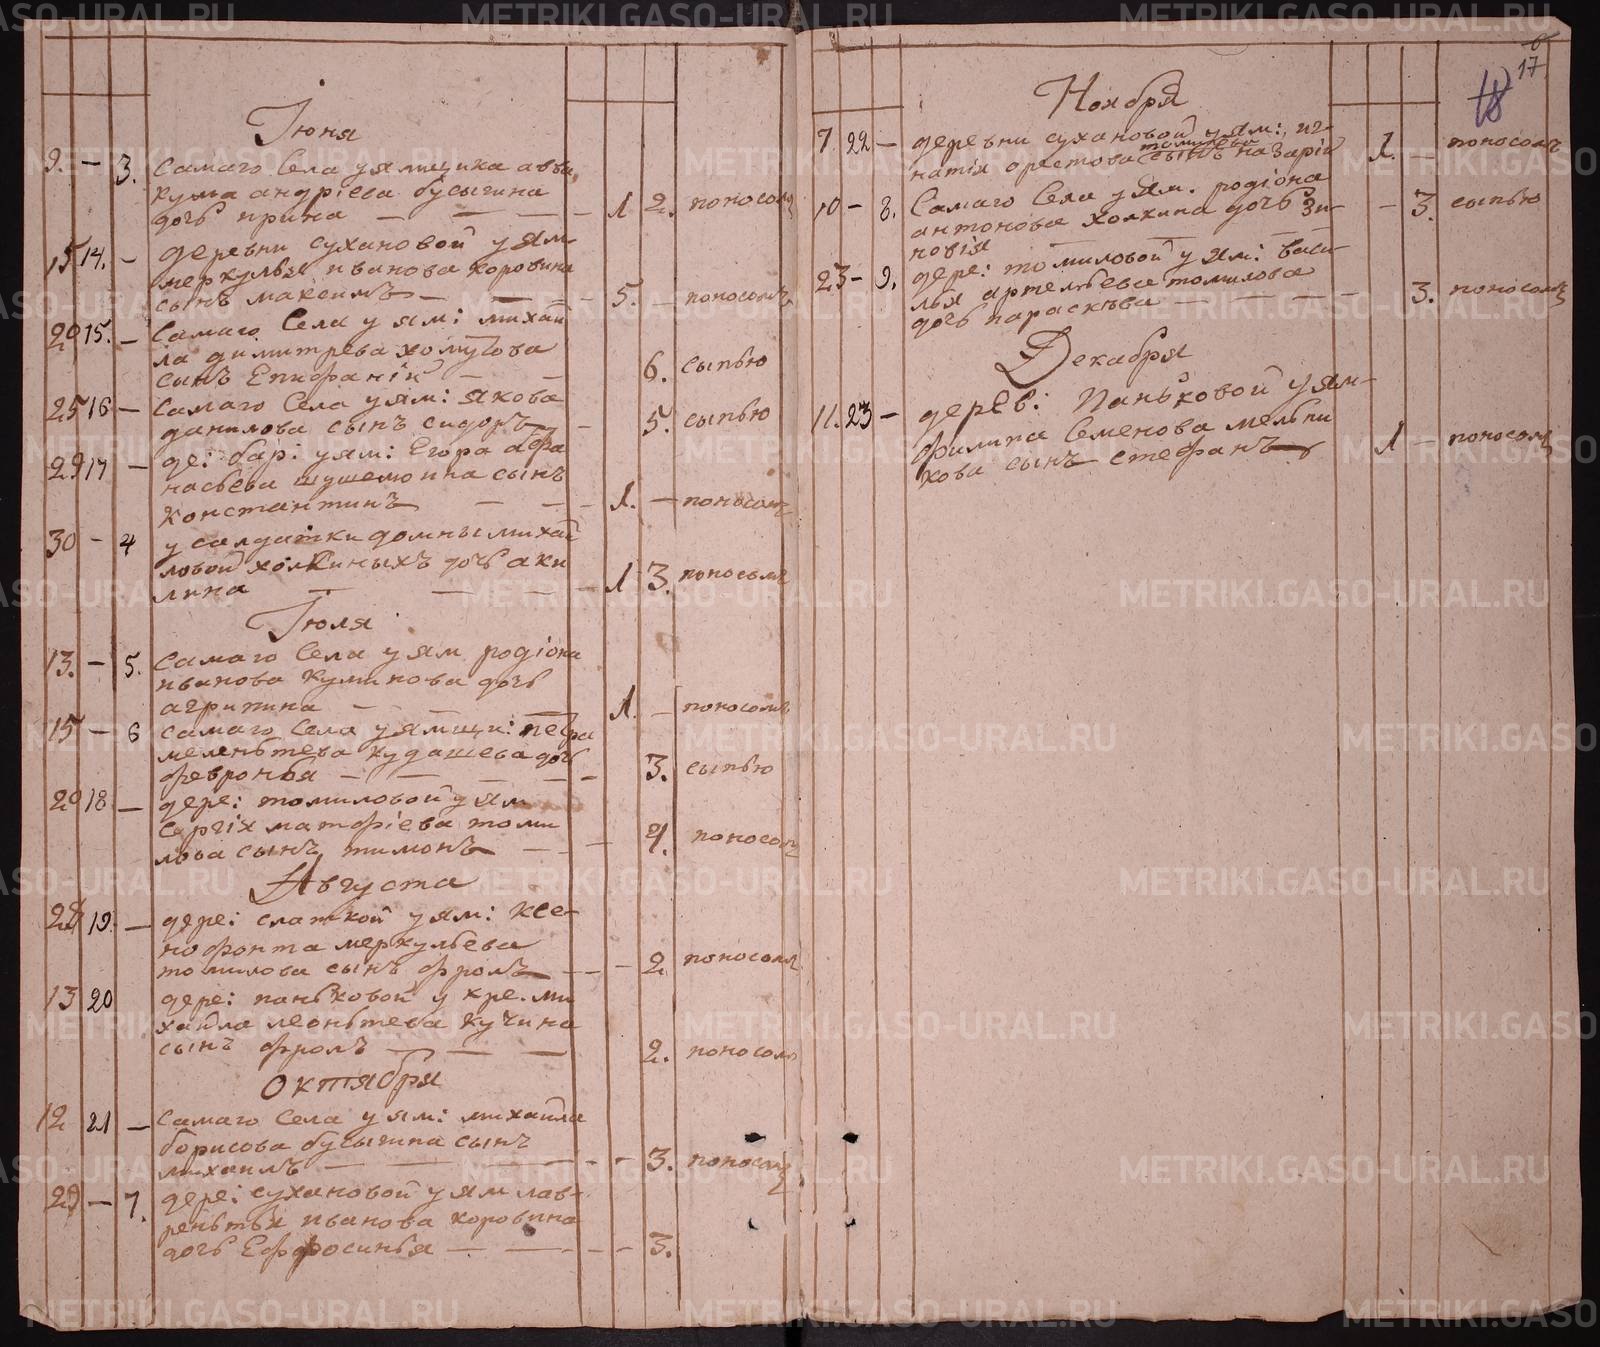 Іюня
9. — 3. самаго села у ямщика авва
кума андріева бусыгина
дочь ирина — — — 1 2. поносомъ
15 14. — деревни сухановой у ям
меркулья иванова коровина
сынъ максимъ — — — 5. — поносомъ
20 15. — самаго села у ям: михай
ла димитрева хомутова
сынъ Епифаній — — 6. сыпью
25 16 — самаго села у ям: якова
данилова сынъ сидоръ — 5. сыпью
29 17 — де: бар: у ям: Егора афа
насьева сынъ
константинъ — — — 1. — поносомъ
30 — 4 у салдатки домны михай
ловой холкиныхъ дочь аки
лина — — — — 1 3. поносомъ
Іюля
13. — 5. самаго села у ям родіона
иванова куминова дочь
агрипина — — 1. — поносомъ
15 — 6 самаго села у ямщи: петра
меленьтева кудашева дочь
февронья — — — — 3. сыпью
20 18 — дере: томиловой у ям
сергія матфіева томи
лова сынъ тимонъ — — 4. поносомъ
Августа
28 19. — дере: слаткой у ям: ксе-
нофонта меркульева
томилова сынъ фролъ — — — 2 поносомъ
13 20 дере: паньковой у кре. ми
хайла леоньтева кучина
сынъ фролъ — — — 2. поносомъ
Октября
12 21 — самаго села у ям: михайла
борисова бусыгина сынъ
михаилъ — — — — — 3. поносомъ
29 — 7. дере: сухановой у ям лав-
реньтья иванова коровина
дочь Ефросинья — — — — 3.
17
18
Ноября
7 22 — деревни сухановой у ям: иг-
натія орестова томилова сынъ назарій 1. — поносомъ
10 — 8. Самаго села у ям. родіона
антонова холкина дочь Зи-
новія — — — 3. сыпью
23 — 9. дере: томиловой у ям: васи-
лья артельева томилова
дочь параскева — — — — 3. поносомъ
Декабря
11. 23 — дерев: Паньковой у ям-
филипа Семенова мельни
кова сынъ стефанъ — 1 — поносомъ
METRIKI.GASO-URAL.RU